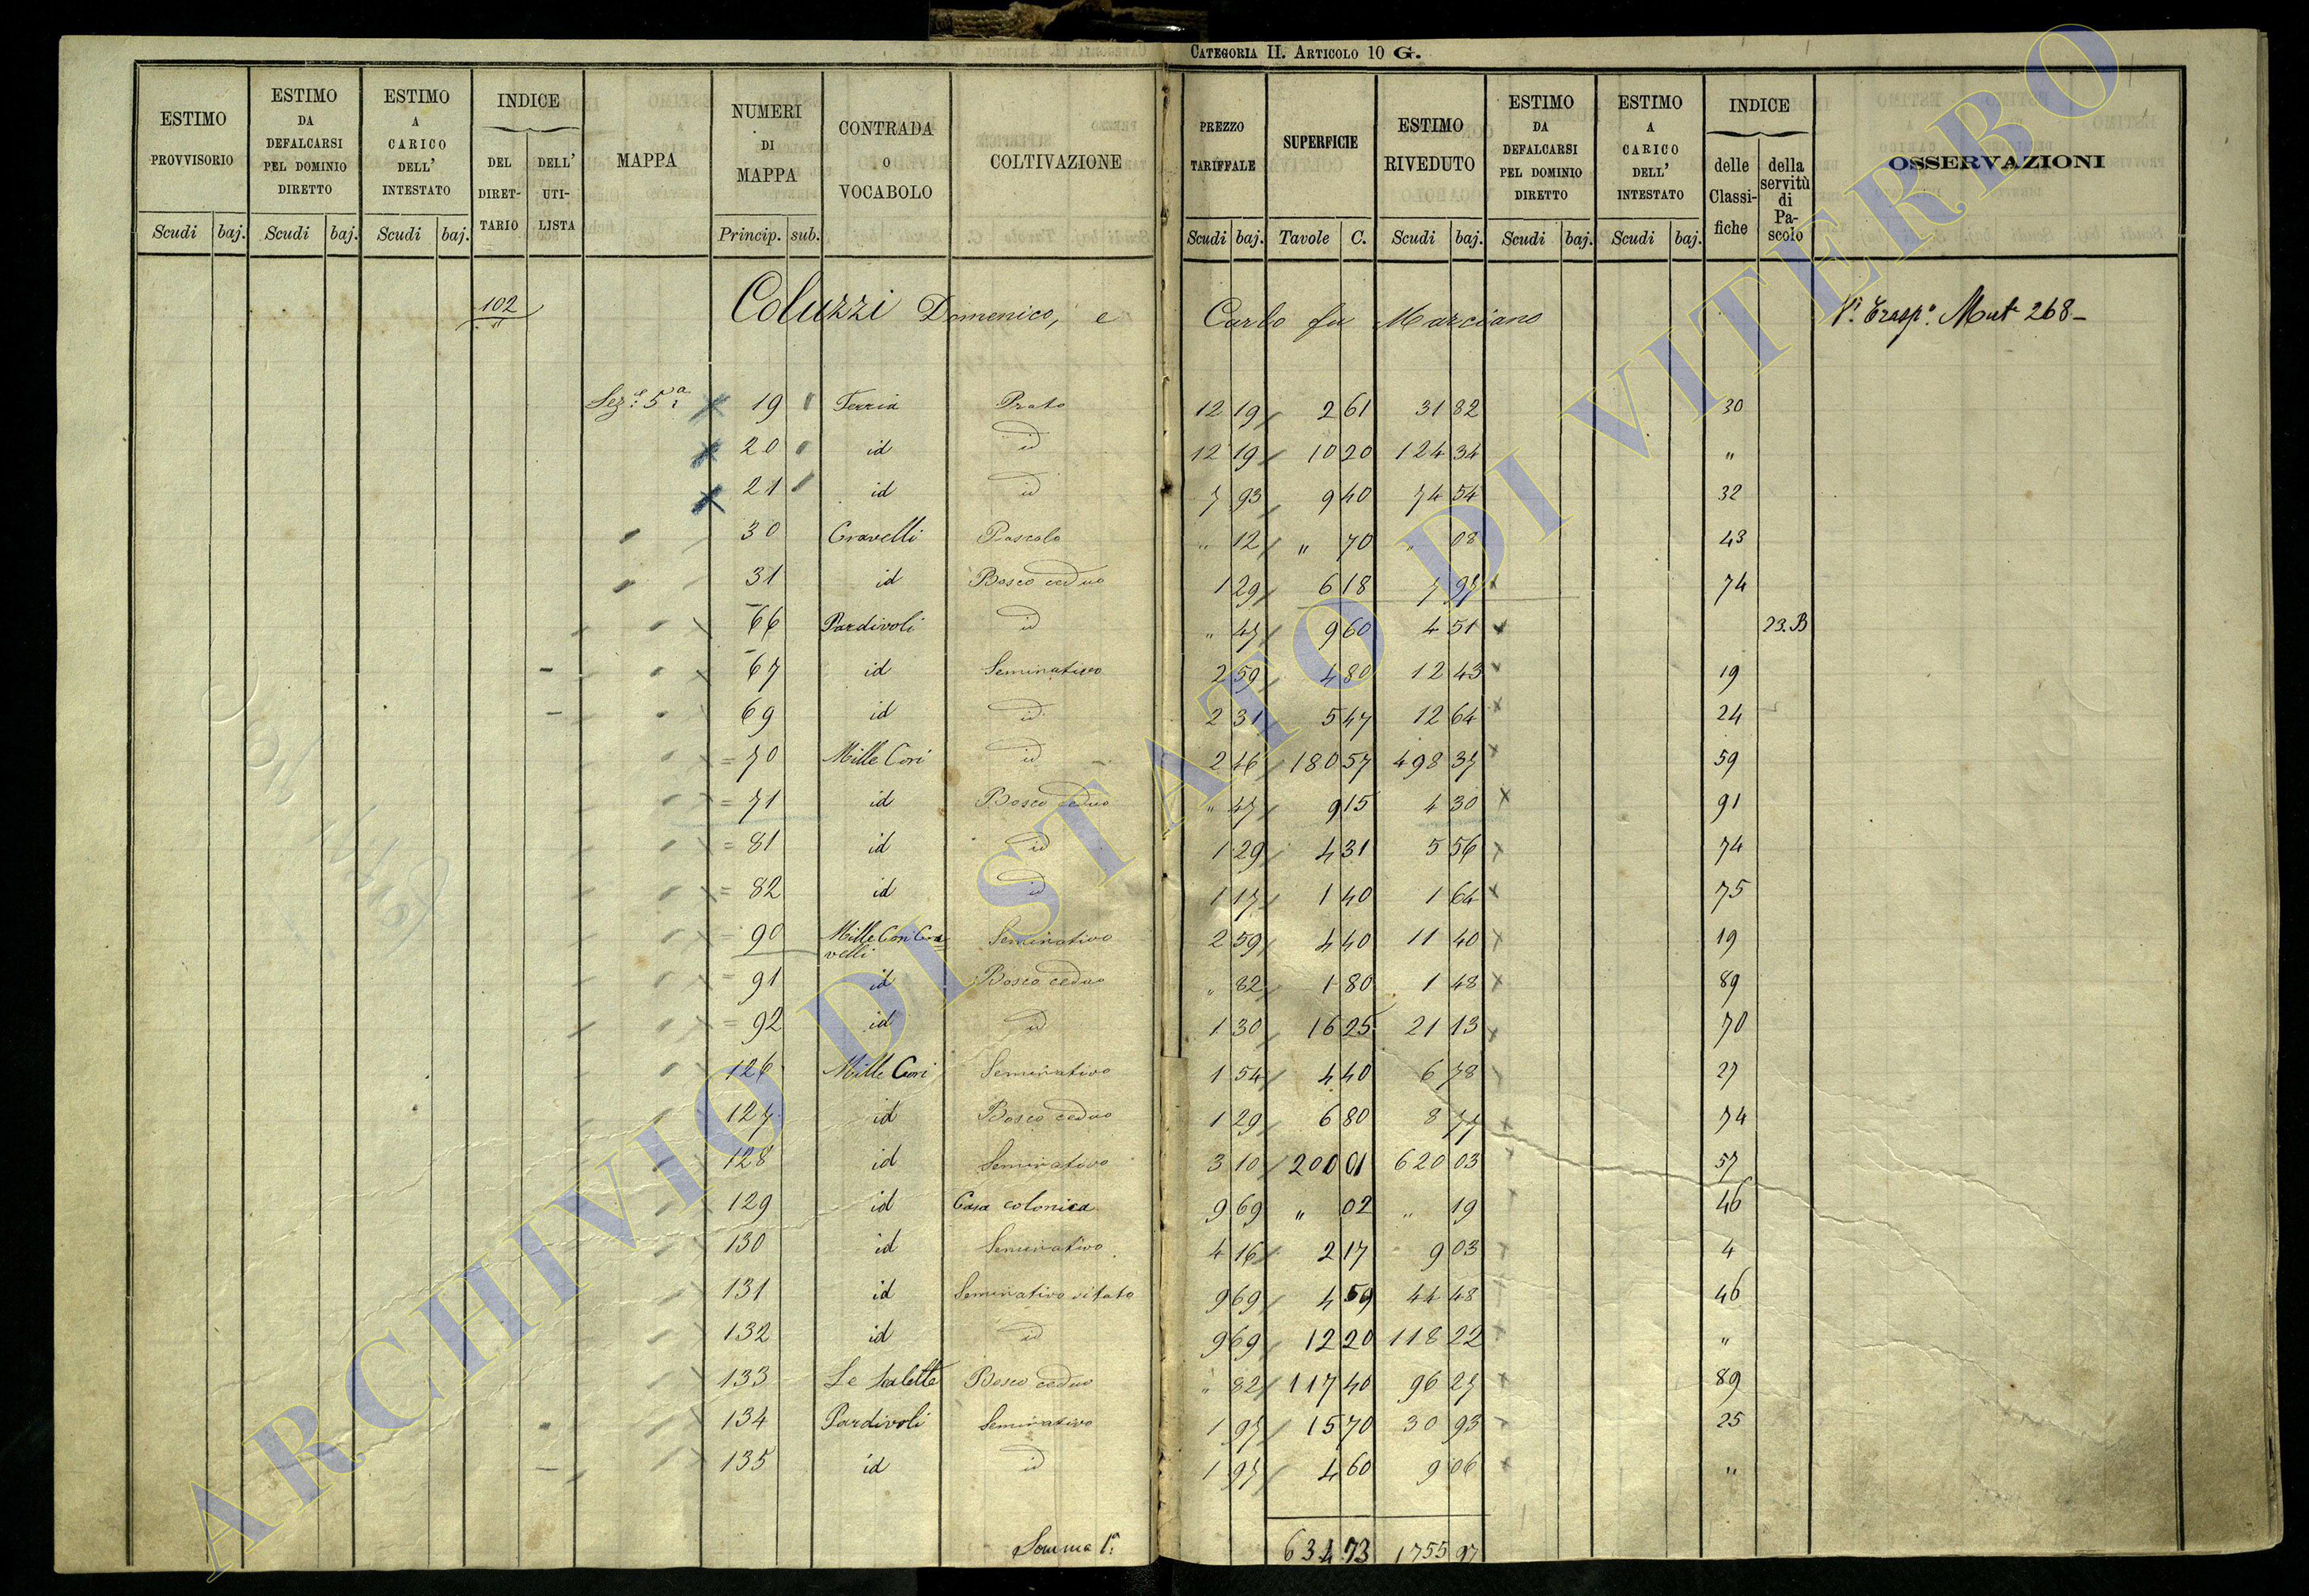 CATEGORIA II. ARTICOLO 10 G.
ESTIMO PROVVISORIO | ESTIMO DA DEFALCARSI PEL DOMINIO DIRETTO | ESTIMO A CARICO DELL' INTESTATO | INDICE DEL DIRETTARIO | DELL' UTILISTA | MAPPA | NUMERI DI MAPPA | CONTRADA O VOCABOLO | COLTIVAZIONE | PREZZO TARIFFALE | SUPERFICIE | ESTIMO RIVEDUTO | ESTIMO DA DEFALCARSI PEL DOMINIO DIRETTO | ESTIMO A CARICO DELL' INTESTATO | INDICE delle Classifiche | della servitù di Pascolo | OSSERVAZIONI
Scudi | baj. | Scudi | baj. | Scudi | baj. | Princip. | sub. | Scudi | baj. | Tavole | C. | Scudi | baj. | Scudi | baj. | Scudi | baj.
102 Coluzzi Domenico, e Carlo fu Marciano Mut 268
Sez.e 5a 19 Terria Prato 12 19 2 61 31 82 30
20 id id 12 19 10 20 124 34 "
21 id id 7 93 9 40 74 54 32
30 Cravelli Pascolo " 12 " 70 " 08 43
31 id Bosco ceduo 1 29 6 18 7 97 74
66 Pardivoli id " 47 9 60 4 51 23.B
67 id Seminativo 2 59 4 80 12 43 19
69 id id 2 31 5 47 12 64 24
70 Mille Cori id 2 46 180 57 498 37 59
71 id Bosco ceduo " 47 9 15 4 30 91
81 id id 1 29 4 31 5 56 74
82 id id 1 17 1 40 1 64 75
90 Mille Cori Cravelli Seminativo 2 59 4 40 11 40 19
91 id Bosco ceduo " 82 1 80 1 48 89
92 id id 1 30 16 25 21 13 70
126 Mille Cori Seminativo 1 54 4 40 6 78 27
127 id Bosco ceduo 1 29 6 80 8 77 74
128 id Seminativo 3 10 200 01 620 03 57
129 id Casa colonica 9 69 " 02 " 19 46
130 id Seminativo 4 16 2 17 9 03 4
131 id Seminativo vitato 9 69 4 59 44 48 46
132 id id 9 69 12 20 118 22 "
133 Le Scalette Bosco ceduo " 82 117 40 96 27 89
134 Pardivoli Seminativo 1 97 15 70 30 93 25
135 id id 1 97 4 60 9 06 "
Somma 1a 634 73 1755 97
ARCHIVIO DI STATO DI VITERBO